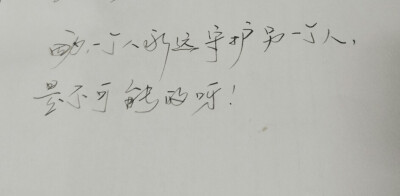 一个人永远守护另一个人，
是不可能的呀！